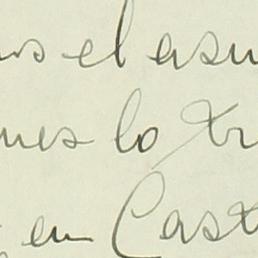 os el asun
nes lo tr
en Cast